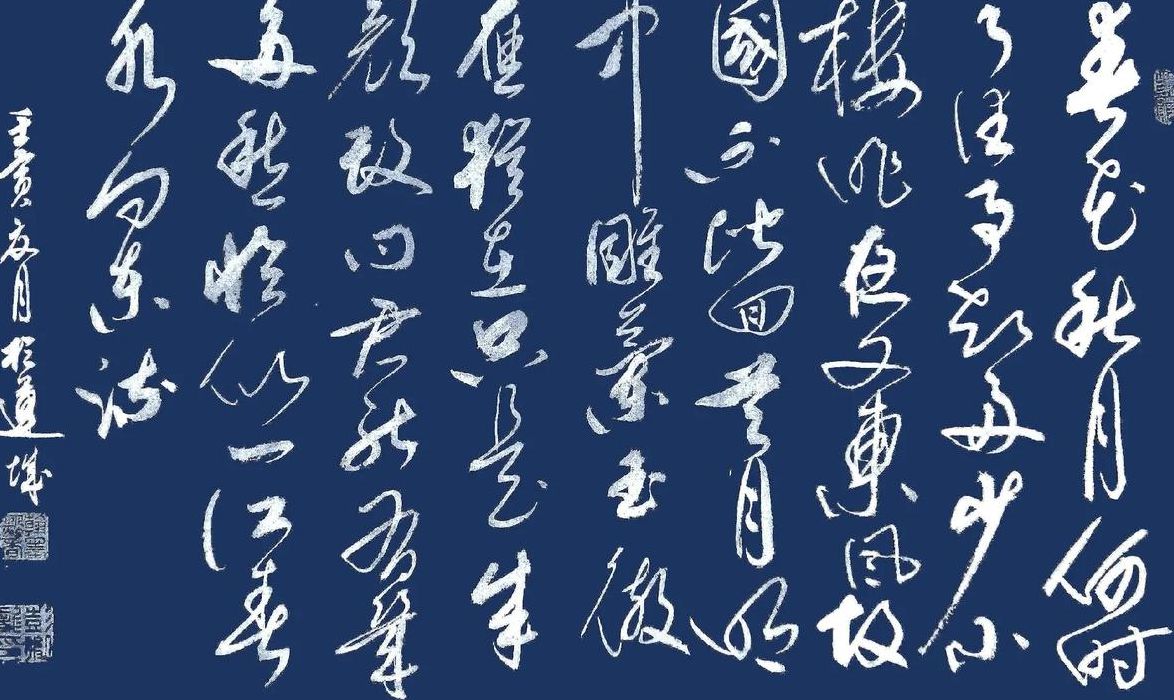 春花秋月何时
了往事知多少小
樓昨夜又東風故
國不堪回首月明
中雕蘭玉
應猶在只是朱
颜改问君能有幾
多愁恰似一江春
水向东流
壬寅夏月於道城